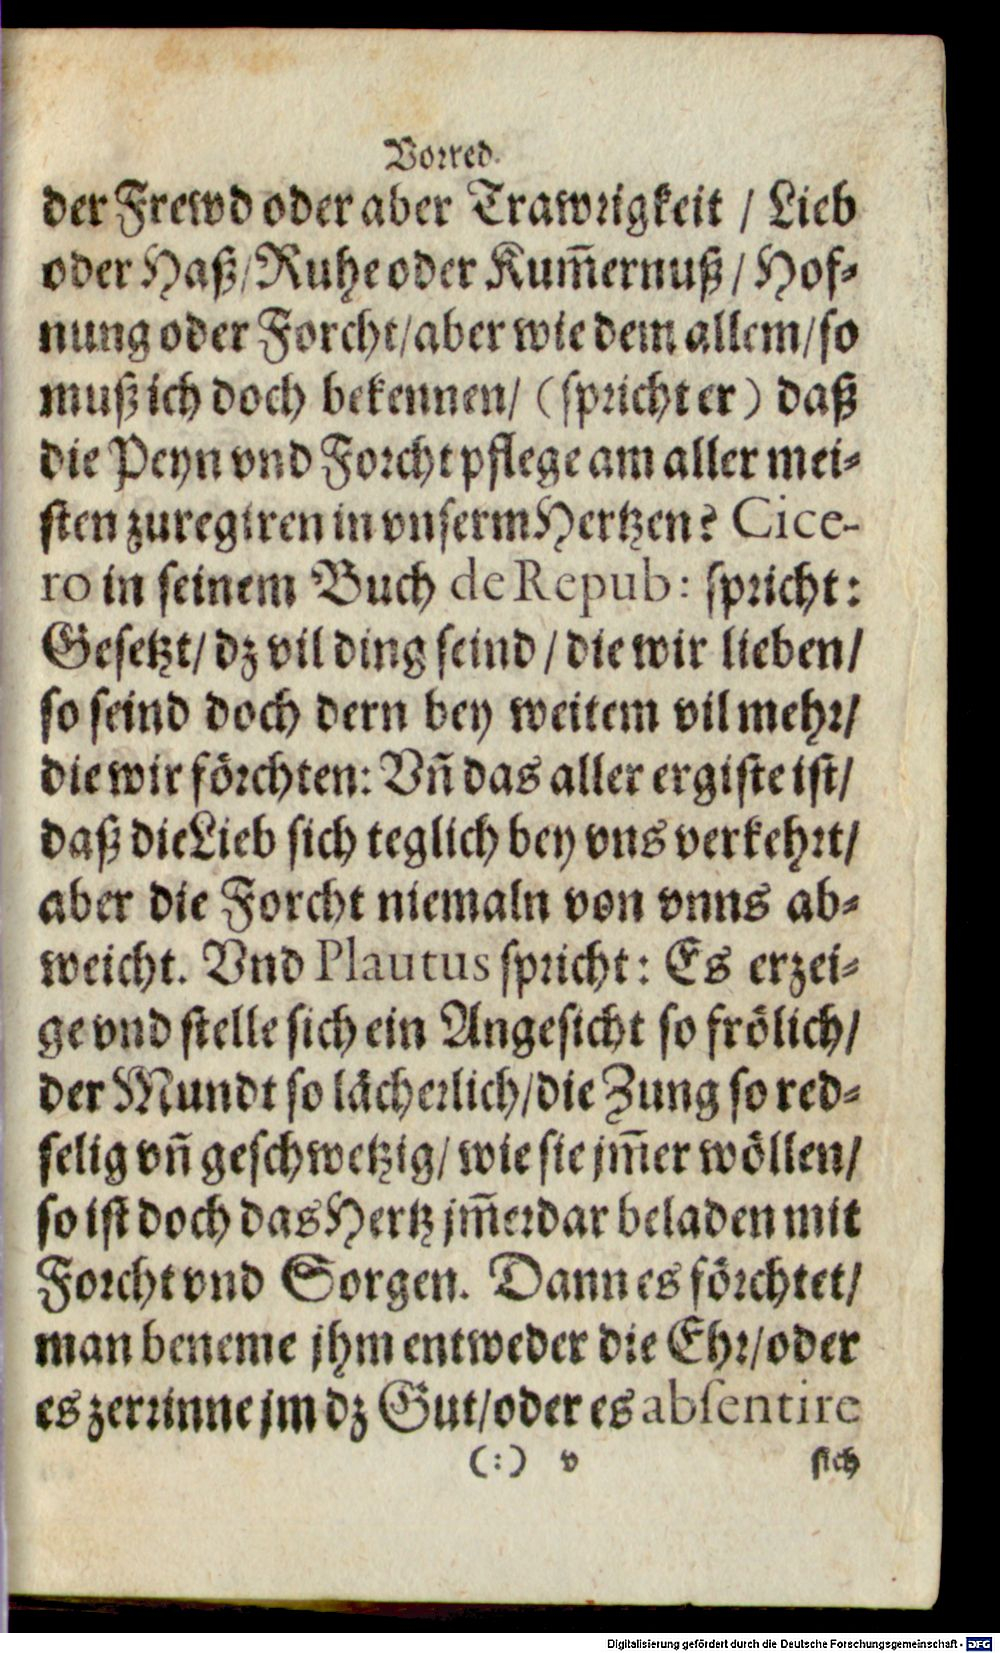 Vorred.
der Frewd oder aber Trawrigkeit / Lieb
oder Haß/Ruhe oder Kum̄ernuß / Hof-
nung oder Forcht/aber wie dem allem/so
muß ich doch bekennen/ (spricht er) daß
die Peyn vnd Forcht pflege am aller mei-
sten zuregiren in vnserm Hertzen? Cice-
ro in seinem Buch de Repub: spricht:
Gesetzt/ dz vil ding seind / die wir lieben/
so seind doch dern bey weitem vil mehr/
die wir förchten: Vn̄ das aller ergiste ist/
daß die Lieb sich teglich bey vns verkehrt/
aber die Forcht niemaln von vnns ab-
weicht. Vnd Plautus spricht: Es erzei-
ge vnd stelle sich ein Angesicht so frölich/
der Mundt so lächerlich/die Zung so red-
selig vn̄ geschwetzig/ wie sie jm̄er wöllen/
so ist doch das Hertz jm̄erdar beladen mit
Forcht vnd Sorgen. Dann es förchtet/
man beneme jhm entweder die Ehr/oder
es zerrinne jm dz Gut/oder es absentire
(:) v sich
Digitalisierung gefördert durch die Deutsche Forschungsgemeinschaft - DFG